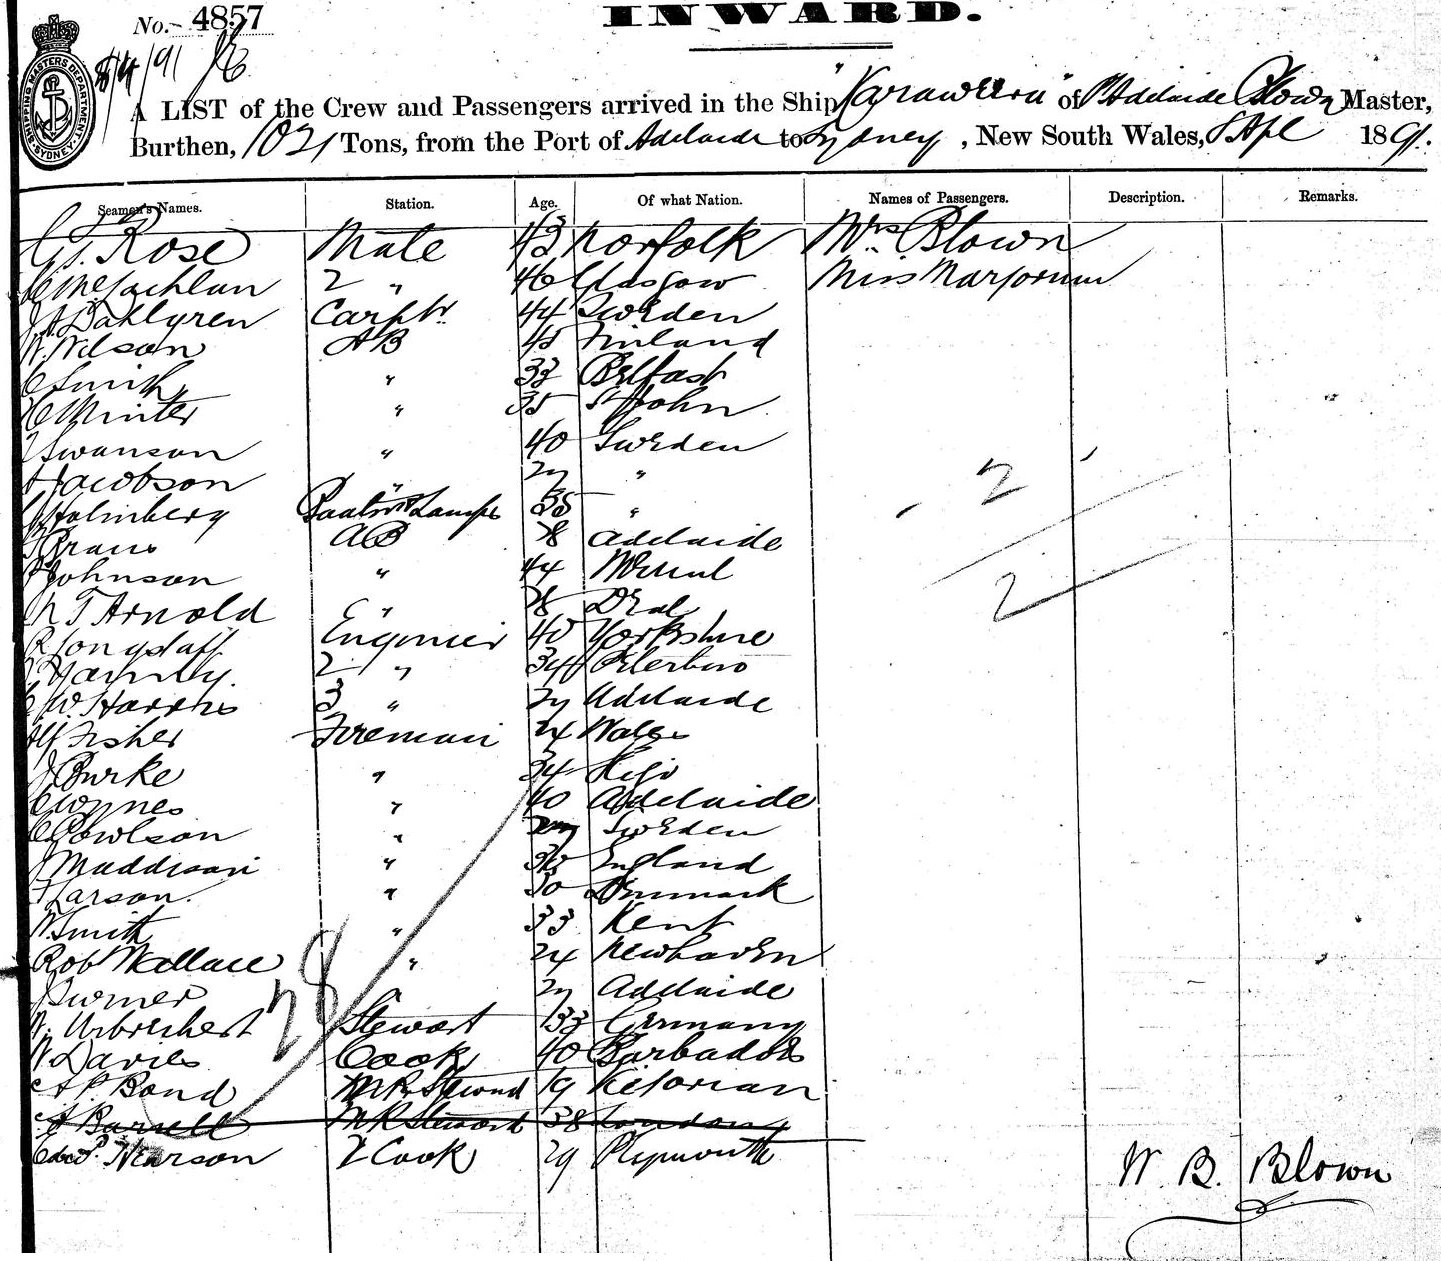 No. 4857
INWARD.
SHIPPING MASTERS DEPARTMENT SYDNEY
8/4/91
A LIST of the Crew and Passengers arrived in the Ship "Karaweera" of Adelaide Blown Master,
Burthen, 1021 Tons, from the Port of Adelaide to Sydney, New South Wales, 8 Apl 1891.
Seamen's Names. Station. Age. Of what Nation. Names of Passengers. Description. Remarks.
G. Rose Mate 43 Norfolk Mrs Blown
C McLachlan 2 " 46 Glasgow Miss Marjorum
J. A. Dahlgren Carptr 44 Sweden
N. Nilson AB 45 Finland
C Smith " 33 Belfast
H Winter " 35 St John
Swanson " 40 Sweden
Jacobson " 27 "
Holmberg & Lamps 35 "
AB 28 Adelaide
Johnson " 44
T Arnold " 28 Deal
R Longstaff Enginier 40 Yorkshire
2 " 34 Peterboro
C W. Harris 3 " 27 Adelaide
Alf Fisher Fireman 24 Wales
J Burke " 34
" 40 Adelaide
C Powlson " Sweden
J Maddison " 30 England
Larson. " 30 Denmark
W. Smith " 33 Kent
Rob Wallace " 24 Newhaven
J Turner " 27 Adelaide
W. Stewart 33 Germany
W Davies Cook 40 Barbados
A P. Bond M R Steward 19 Victorian
A Barrell M R Stewart 38 London
Pearson 2 Cook 29 Plymouth
28
2
2
W. B. Blown